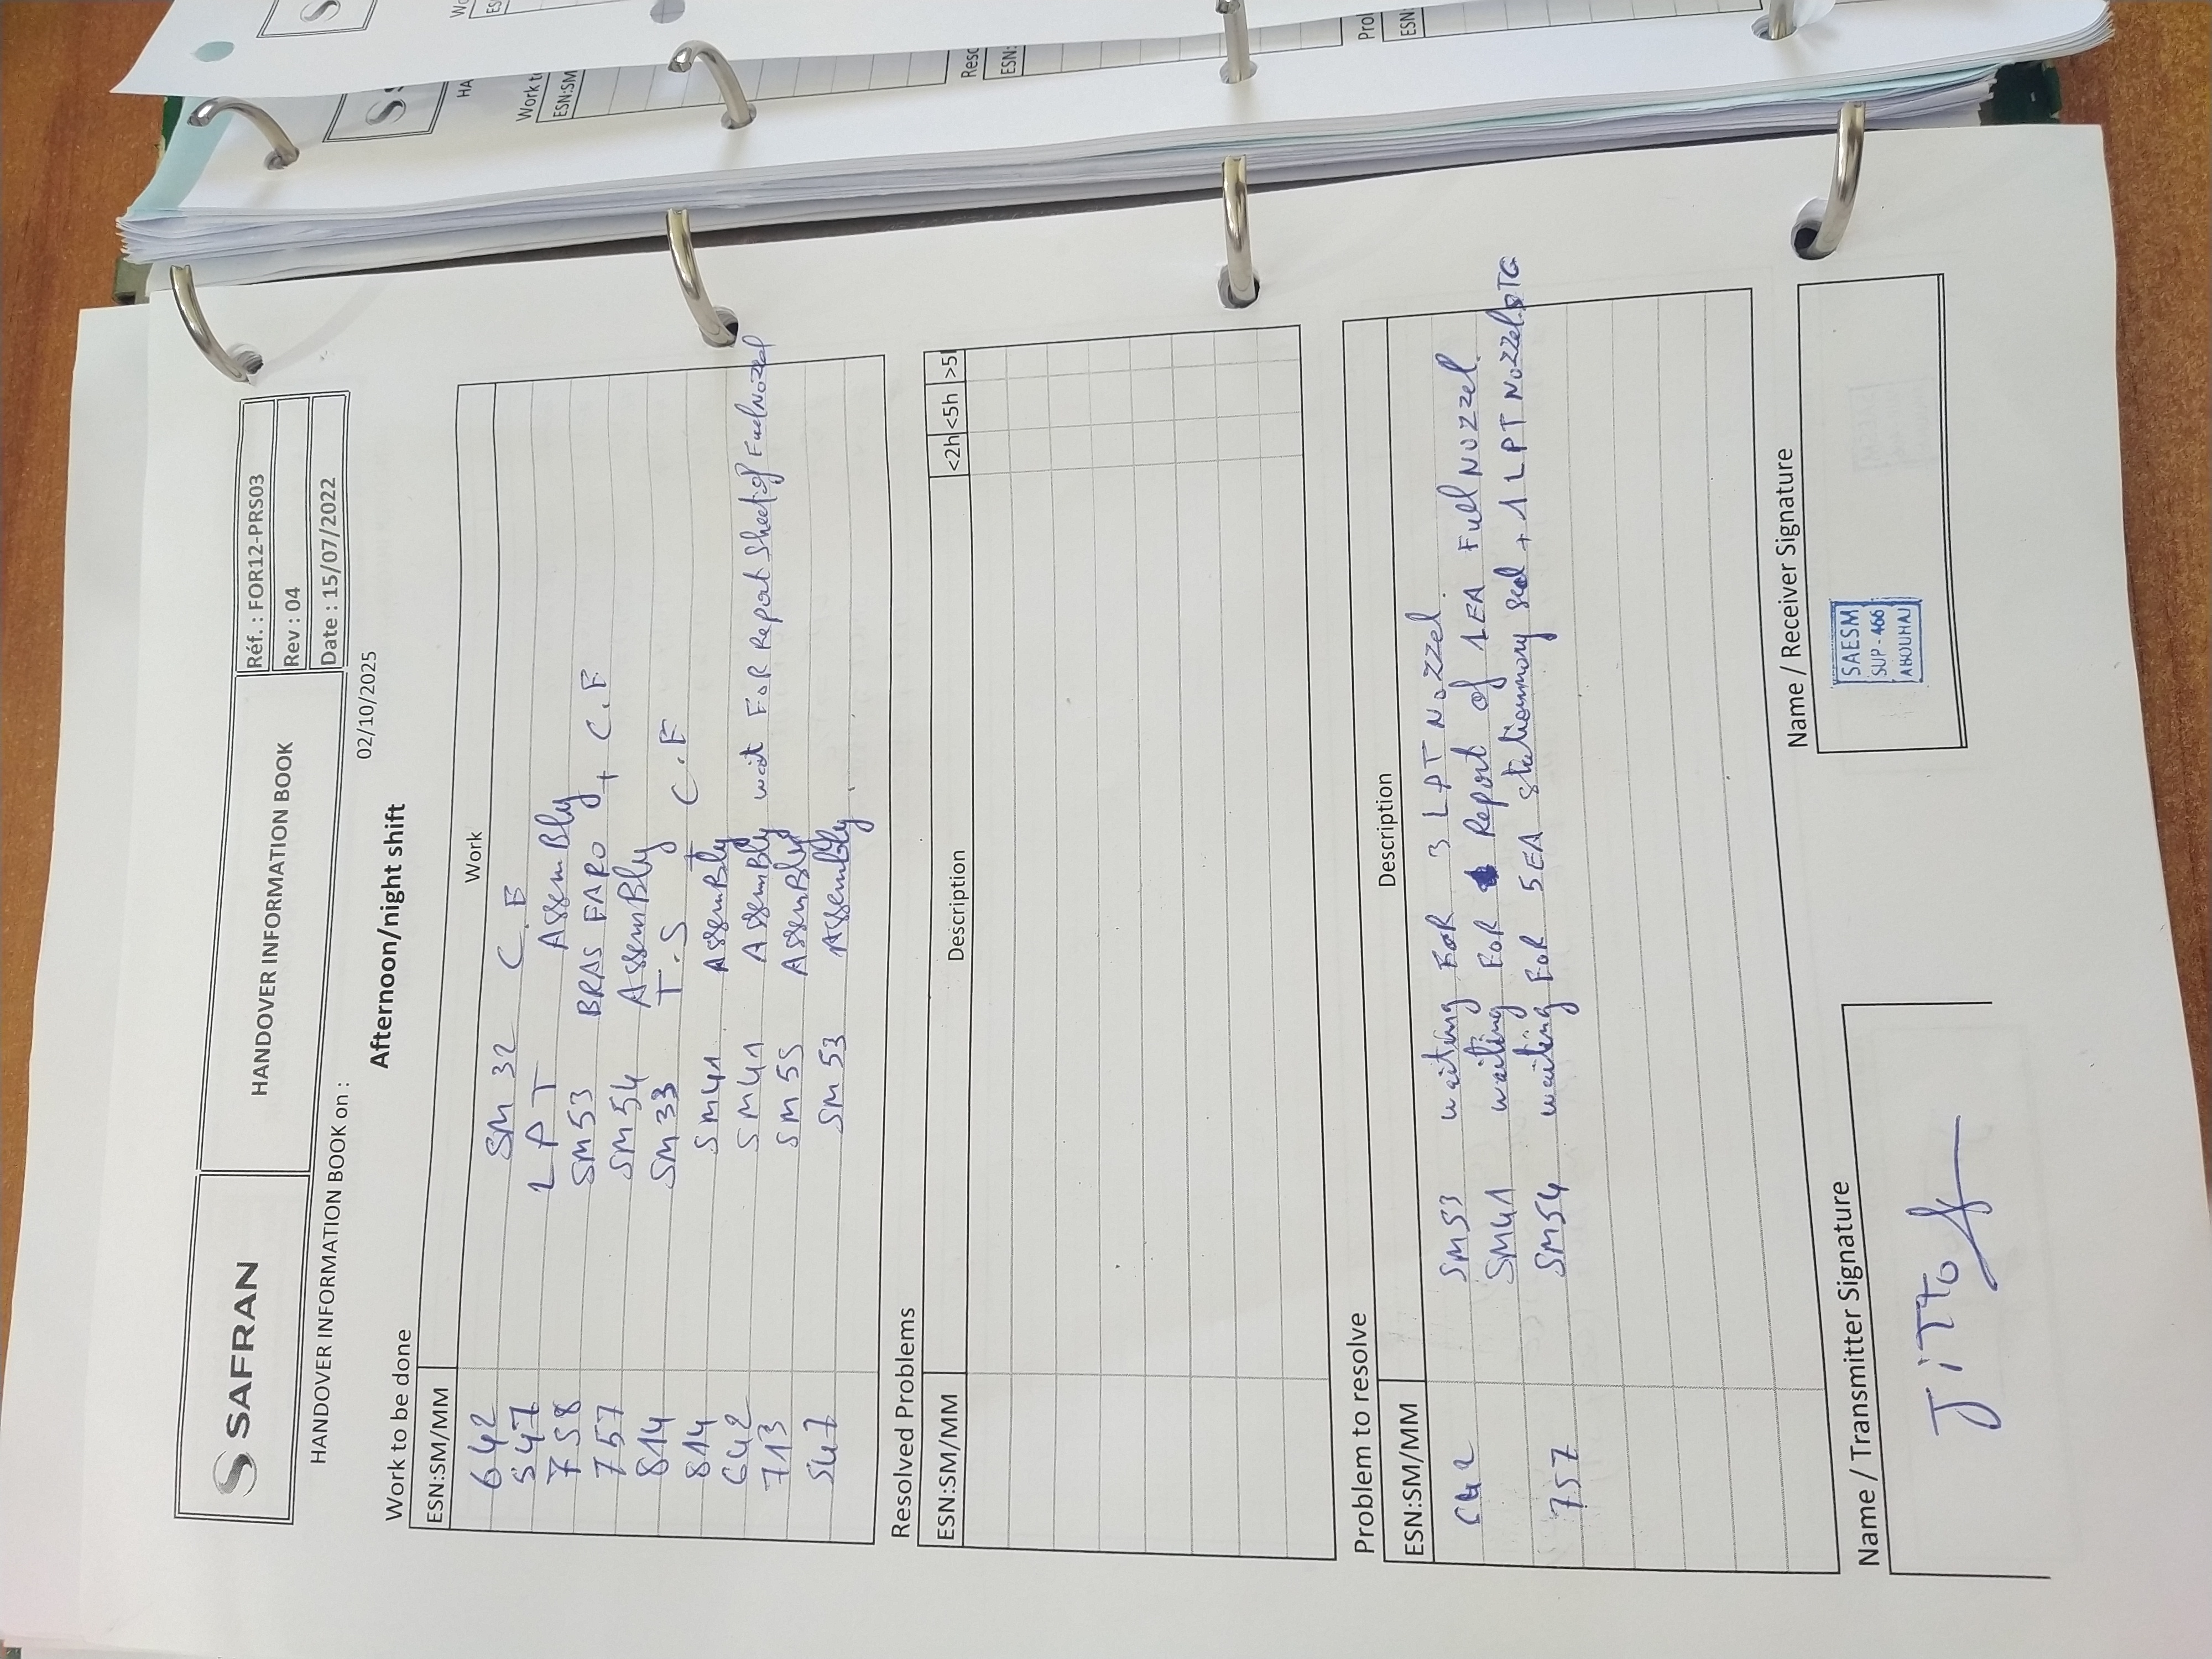 SAFRAN
HANDOVER INFORMATION BOOK
Réf. : FOR12-PRS03
Rev : 04
Date : 15/07/2022
HANDOVER INFORMATION BOOK on :
02/10/2025
Afternoon/night shift
Work to be done
ESN:SM/MM Work
642 SM 32 C.E
547 LPT AssemBly
758 SM53 BRAS FARO + C.F
757 SM54 AssemBly
814 SM33 T.S + C.F
814 SM41 AssemBly
642 SM41 AssemBly wait FoR Report Sheet of Fuel Nozzel
713 SM55 AssemBly
547 SM 53 Assembly.
Resolved Problems
ESN:SM/MM Description <2h <5h >5
Problem to resolve
ESN:SM/MM Description
642 SM53 waiting FoR 3 LPT Nozzel.
SM41 waiting FoR Report of 1EA Full Nozzel.
757 SM54 waiting FoR 5EA stationnary seal + 1 LPT Nozzel STG
Name / Transmitter Signature
Jitto
Name / Receiver Signature
SAESM
SUP - 466
ABOUHAJ
HA
Work t
ESN:SM
Reso
ESN:
Prol
ESN
Wo
ES